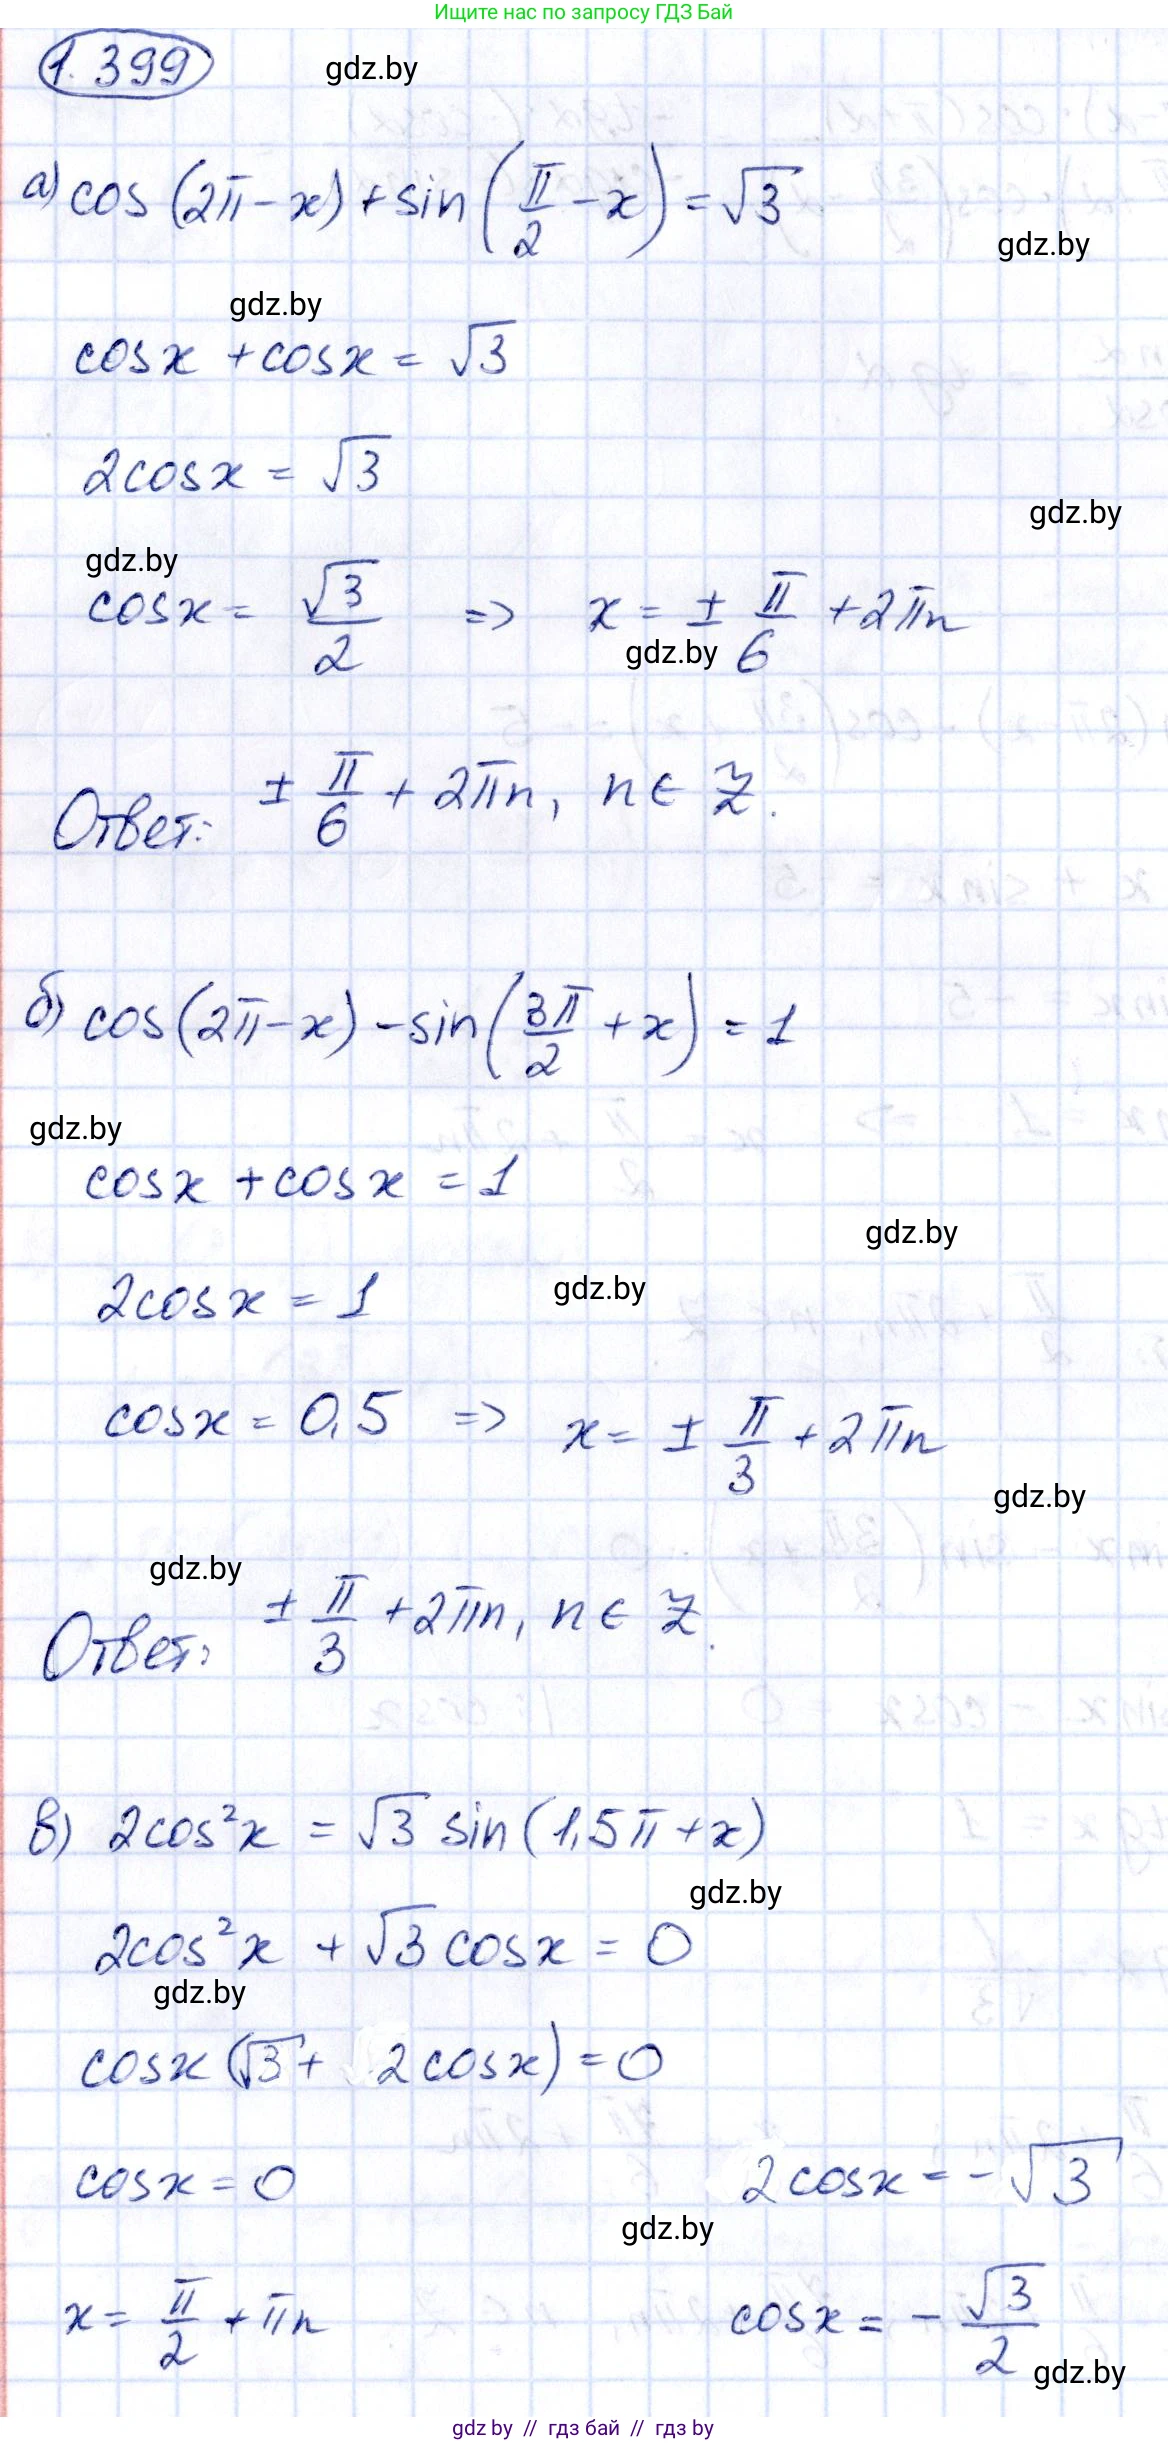 Ищите нас по запросу ГДЗ Бай
1.399
gdz.by
а) cos (2π - x) + sin (π/2 - x) = √3
gdz.by
gdz.by
cosx + cosx = √3
2cosx = √3
gdz.by
gdz.by
cosx = √3/2 => x = ± π/6 + 2πn
gdz.by
Ответ: ± π/6 + 2πn, n ∈ Z.
б) cos(2π - x) - sin(3π/2 + x) = 1
gdz.by
cosx + cosx = 1
gdz.by
2cosx = 1
gdz.by
cosx = 0,5 => x = ± π/3 + 2πn
gdz.by
gdz.by
Ответ: ± π/3 + 2πn, n ∈ Z.
в) 2cos²x = √3 sin(1,5π + x)
gdz.by
2cos²x + √3 cosx = 0
gdz.by
cosx (√3 + 2cosx) = 0
cosx = 0 2cosx = -√3
gdz.by
x = π/2 + πn cosx = - √3/2
gdz.by
gdz.by // гдз бай // гдз by